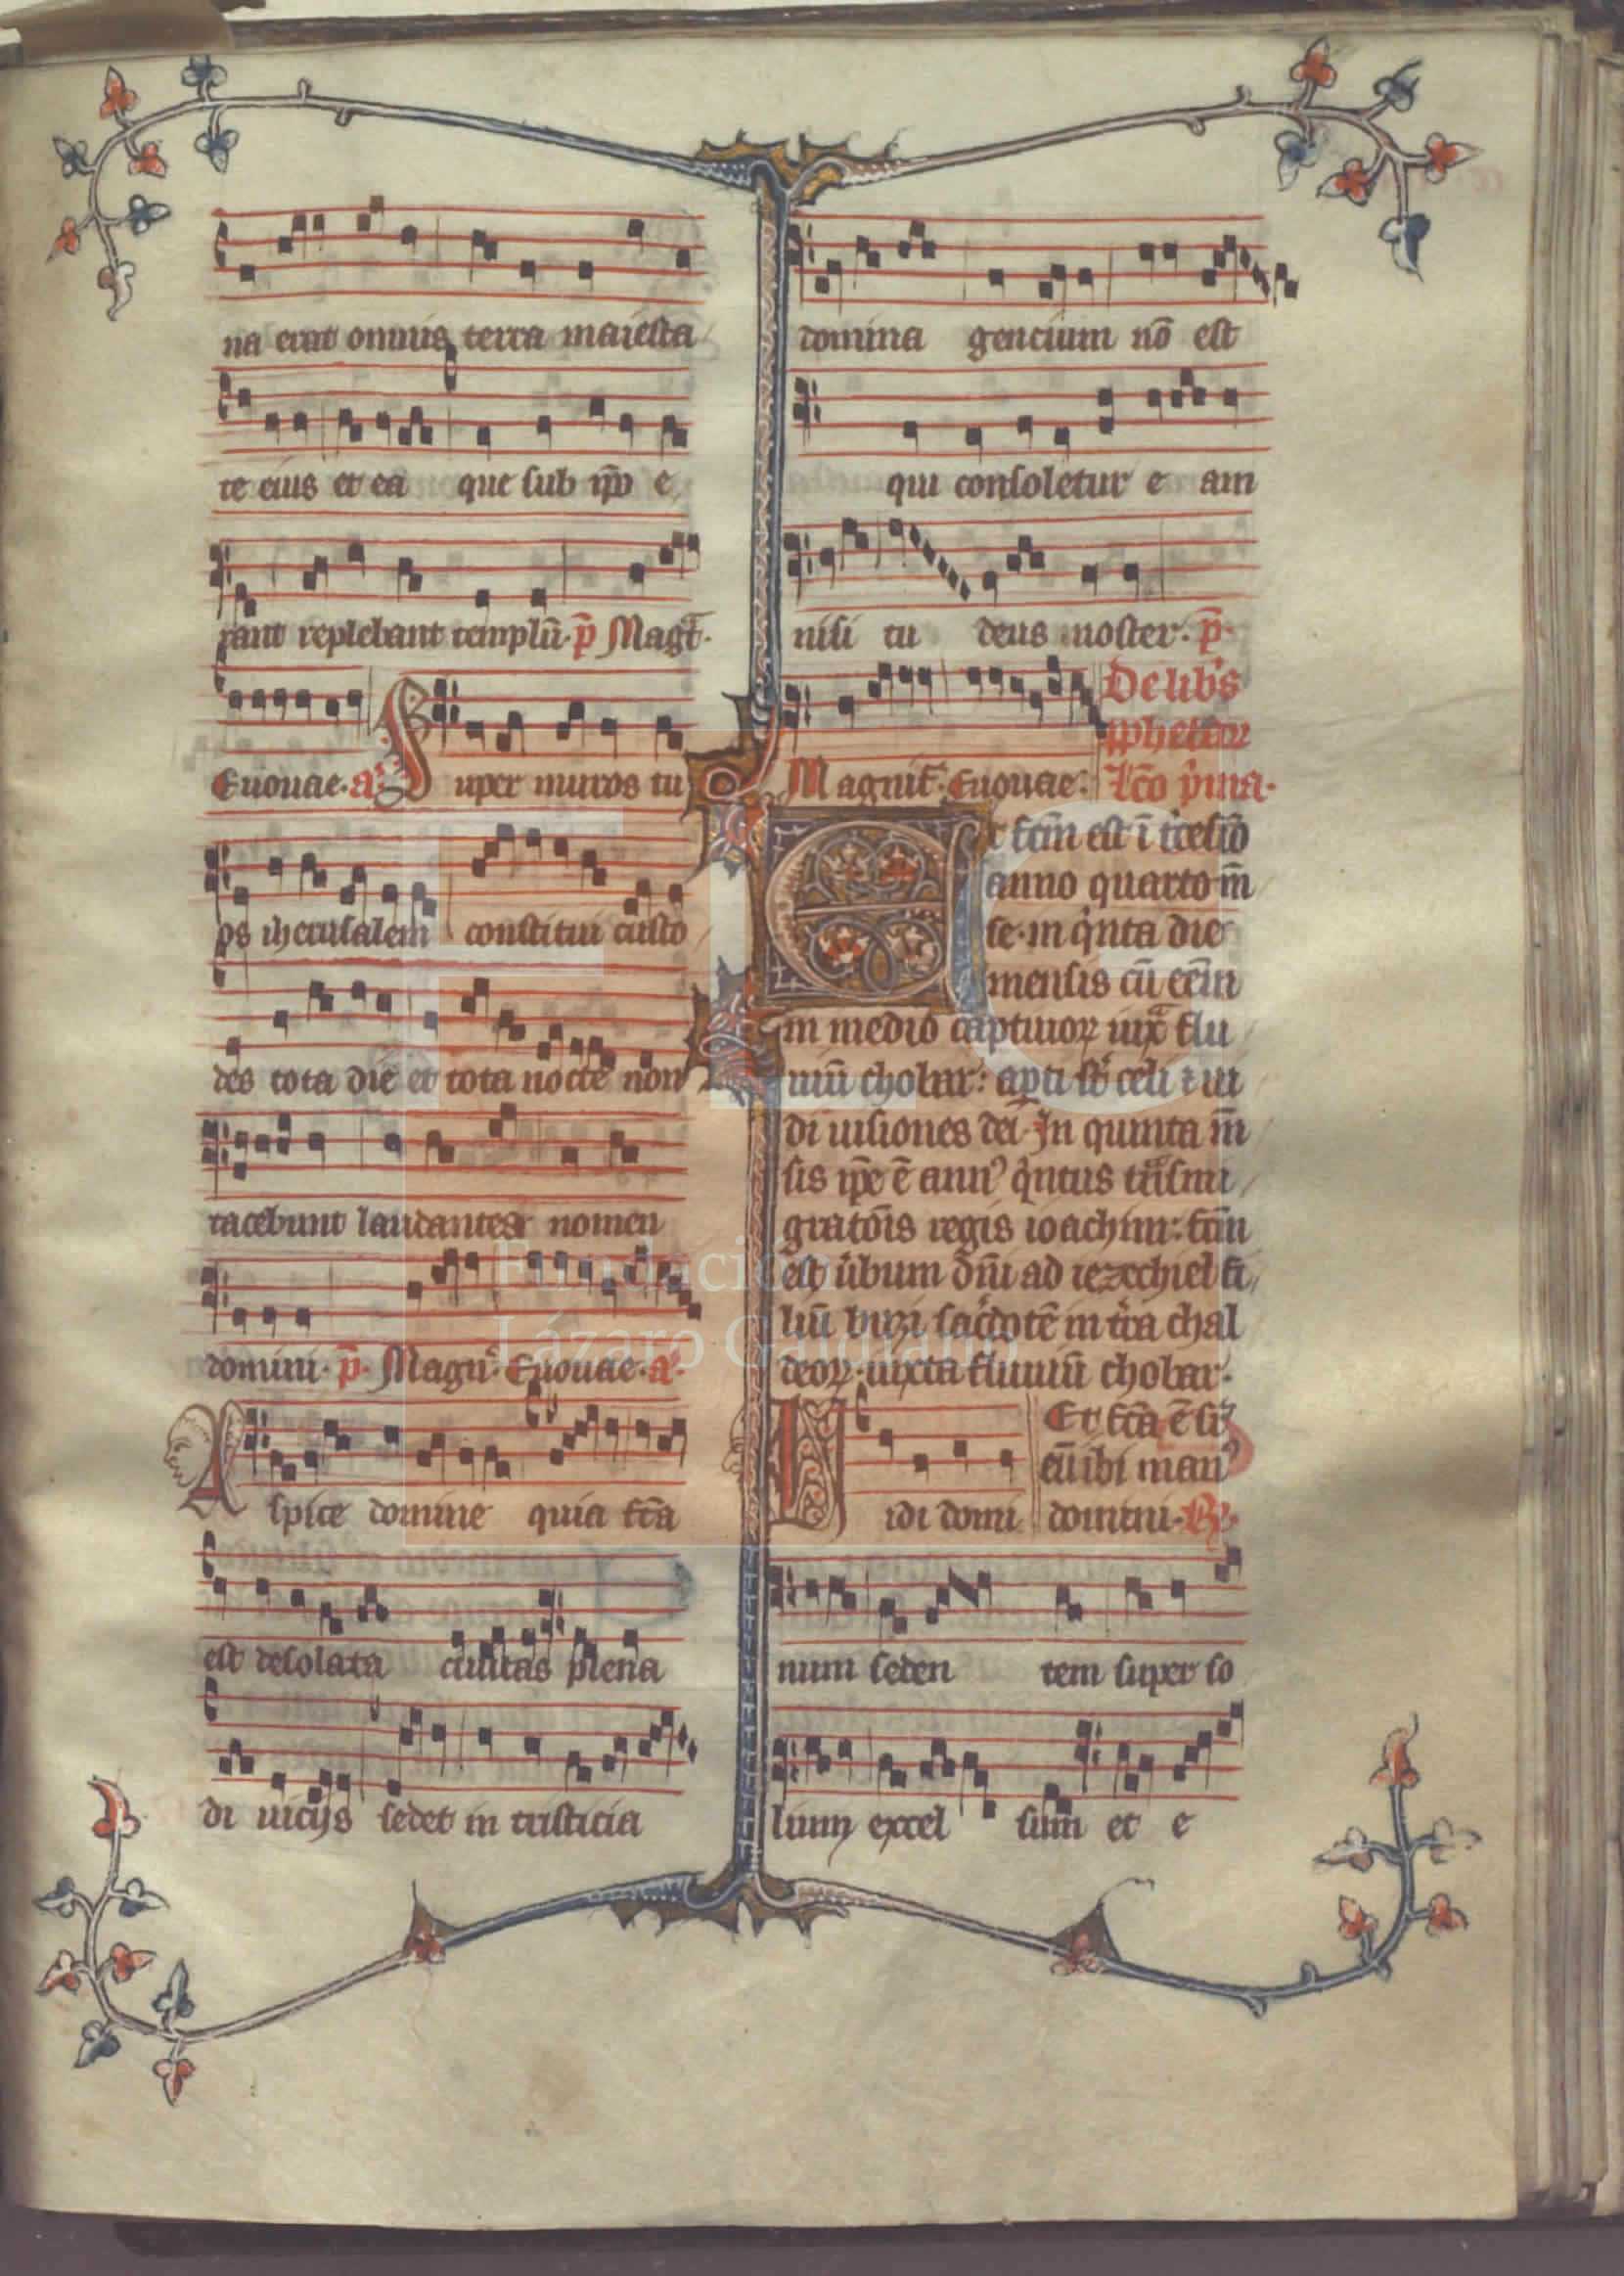 na erat omnis terra maiesta
te eius et ea que sub ip̄o e
rant replebant templū. p̄ Magt̄.
Euouae. a᷑. Super muros tu
os iherusalem constitui custo
des tota die et tota nocte non
tacebunt laudantes nomen
domini. p̄. Magn̄. Euouae. a᷑.
Aspice domine quia fc̄a
est desolata ciuitas plena
diuicijs sedet in tristicia
domina gencium nō est
qui consoletur e am
nisi tu deus noster. p̄.
Magnif̄. Euouae.
De lib's
ꝓphetaꝝ
lc̄o p'ma.
Et fc̄m est ī t'cesīo
anno quarto m̄
se. in q'nta die
mensis cū eēm
in medio captiuoꝝ iuxª flu
uiū chobar: apti st̄ celi ⁊ ui
di uisiones dei. In quinta m̄
sis ip̄e ē annꝰ q'ntus tªsmi
gratōis regis ioachim: fc̄m
est u'bum dn̄i ad iezechiel fi
liū buzi sac'dotē in t'ra chal
deoꝝ. iuxta fluuiū chobar.
Et fc̄a ē sr̄
eū ibi manꝰ
domini. ℟.
Vidi domi
num seden tem super so
lium excel sum et e
Fundación
Lázaro Galdiano
FLG